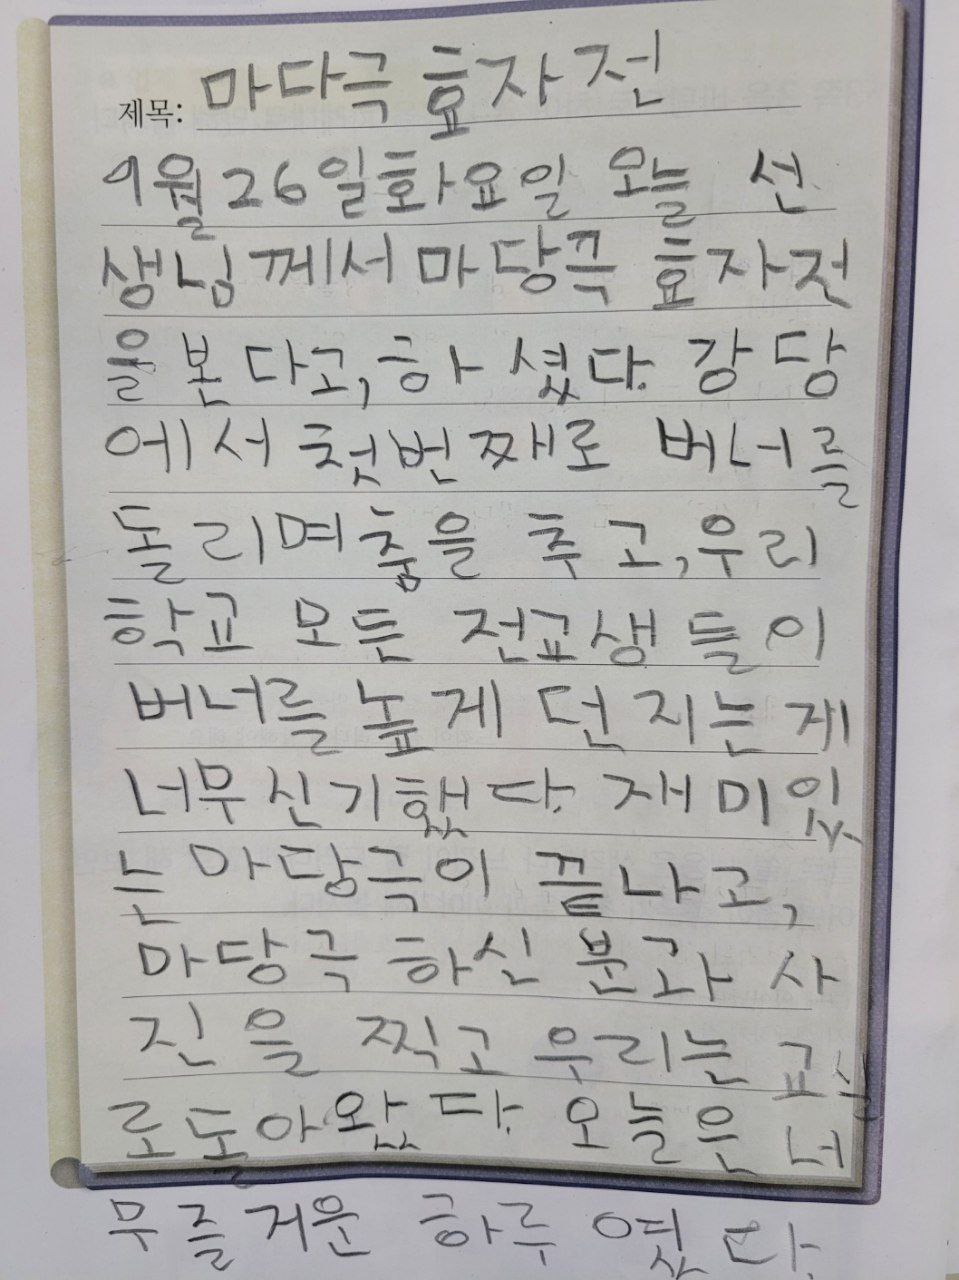 제목: 마다극 효자전
9월 26일화요일 오늘 선
생님께서 마당극 효자전
을 본다고, 하셨다. 강당
에서 첫번째로 버너를
돌리며 춤을 추고, 우리
학교 모든 전교생들이
버너를 높게 던지는게
너무 신기했다. 재미있
는 마당극이 끝나고,
마당극 하신 분과 사
진을 찍고 우리는 교실
로 돌아왔다. 오늘은 너
무 즐거운 하루였다.